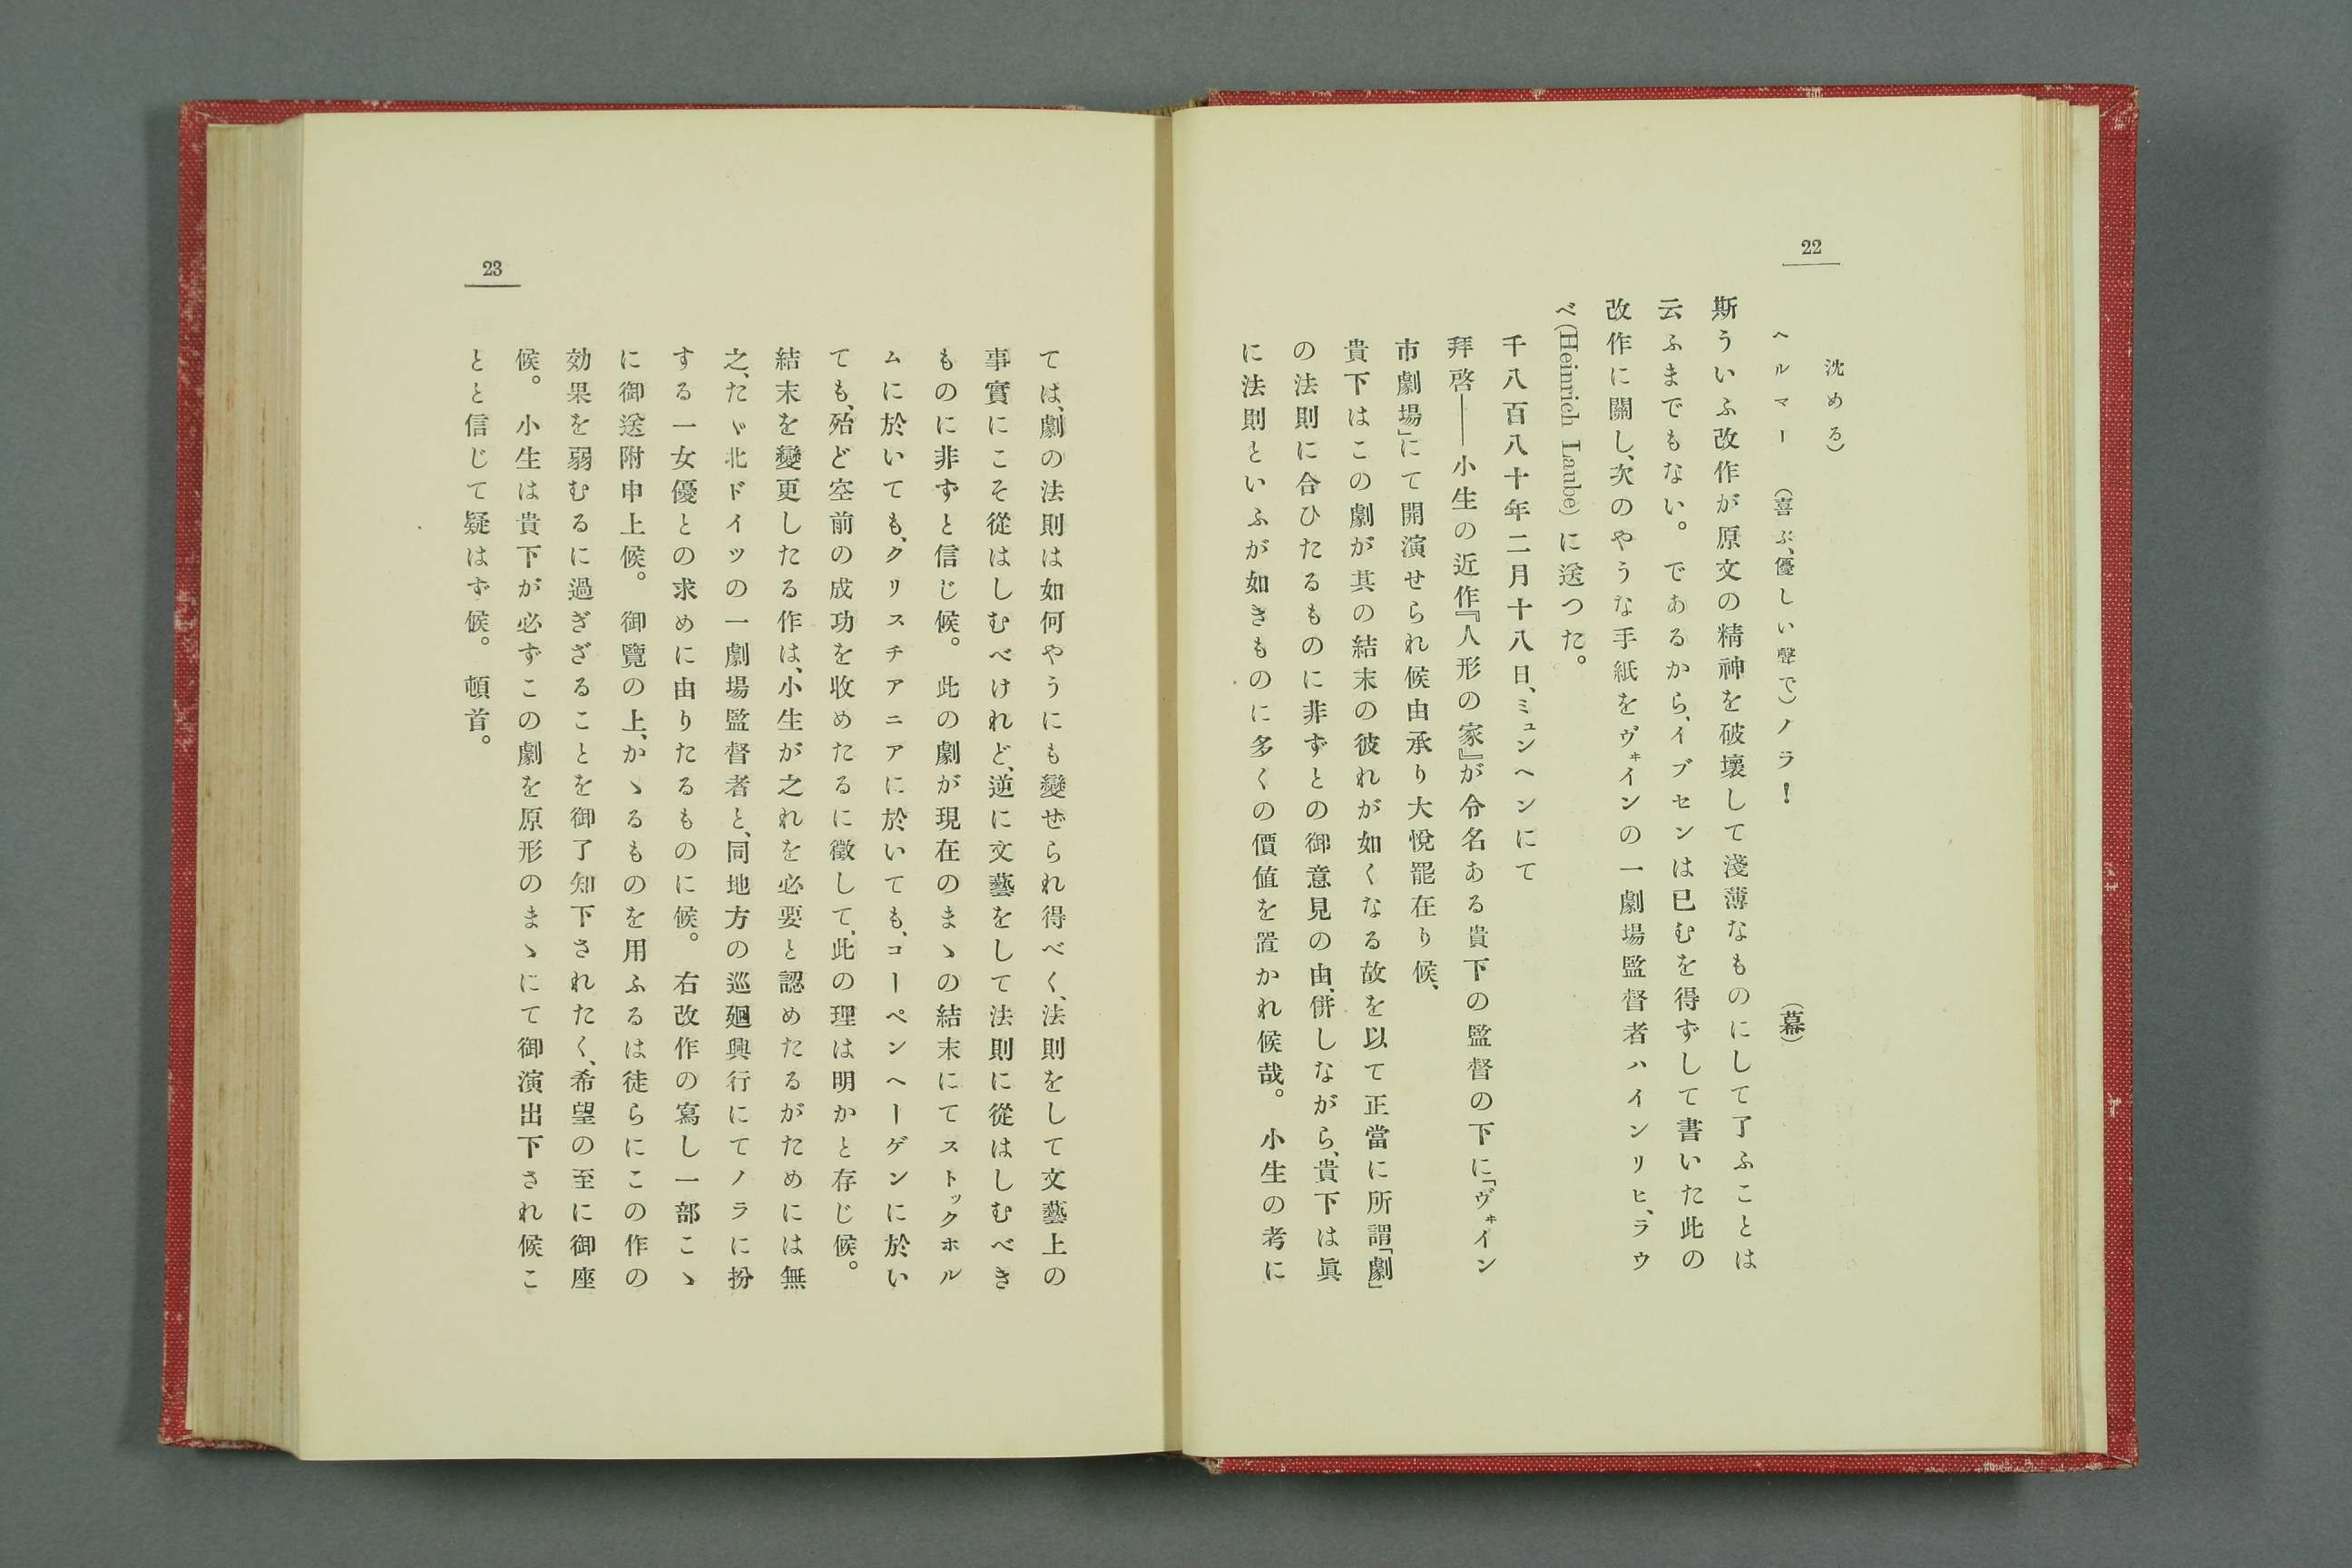 22
沈める）
ヘルマー　（喜ぶ、優しい聲で）ノラ！　（幕）
斯ういふ改作が原文の精神を破壞して淺薄なものにして了ふことは
云ふまでもない。であるから、イブセンは已むを得ずして書いた此の
改作に關し、次のやうな手紙をヴヰインの一劇場監督者ハインリヒ、ラウ
ベ(Heinrich Laube)に送つた。
千八百八十年二月十八日、ミュンヘンにて
拜啓――小生の近作『人形の家』が令名ある貴下の監督の下に「ヴヰイン
市劇場」にて開演せられ候由承り大悅罷在り候、
貴下はこの劇が其の結末の彼れが如くなる故を以て正當に所謂「劇」
の法則に合ひたるものに非ずとの御意見の由、併しながら、貴下は眞
に法則といふが如きものに多くの價値を置かれ候哉。小生の考に
23
ては、劇の法則は如何やうにも變ぜられ得べく、法則をして文藝上の
事實にこそ從はしむべけれど、逆に文藝をして法則に從はしむべき
ものに非ずと信じ候。此の劇が現在のまゝの結末にてストックホル
ムに於いても、クリスチアニアに於いても、コーペンヘーゲンに於い
ても、殆ど空前の成功を收めたるに徵して、此の理は明かと存じ候。
結末を變更したる作は、小生が之れを必要と認めたるがためには無
之、たゞ北ドイツの一劇場監督者と、同地方の巡廻興行にてノラに扮
する一女優との求めに由りたるものに候。右改作の寫し一部こゝ
に御送附申上候。御覽の上、かゝるものを用ふるは徒らにこの作の
効果を弱むるに過ぎざることを御了知下されたく、希望の至に御座
候。小生は貴下が必ずこの劇を原形のまゝにて御演出下され候こ
とと信じて疑はず候。頓首。